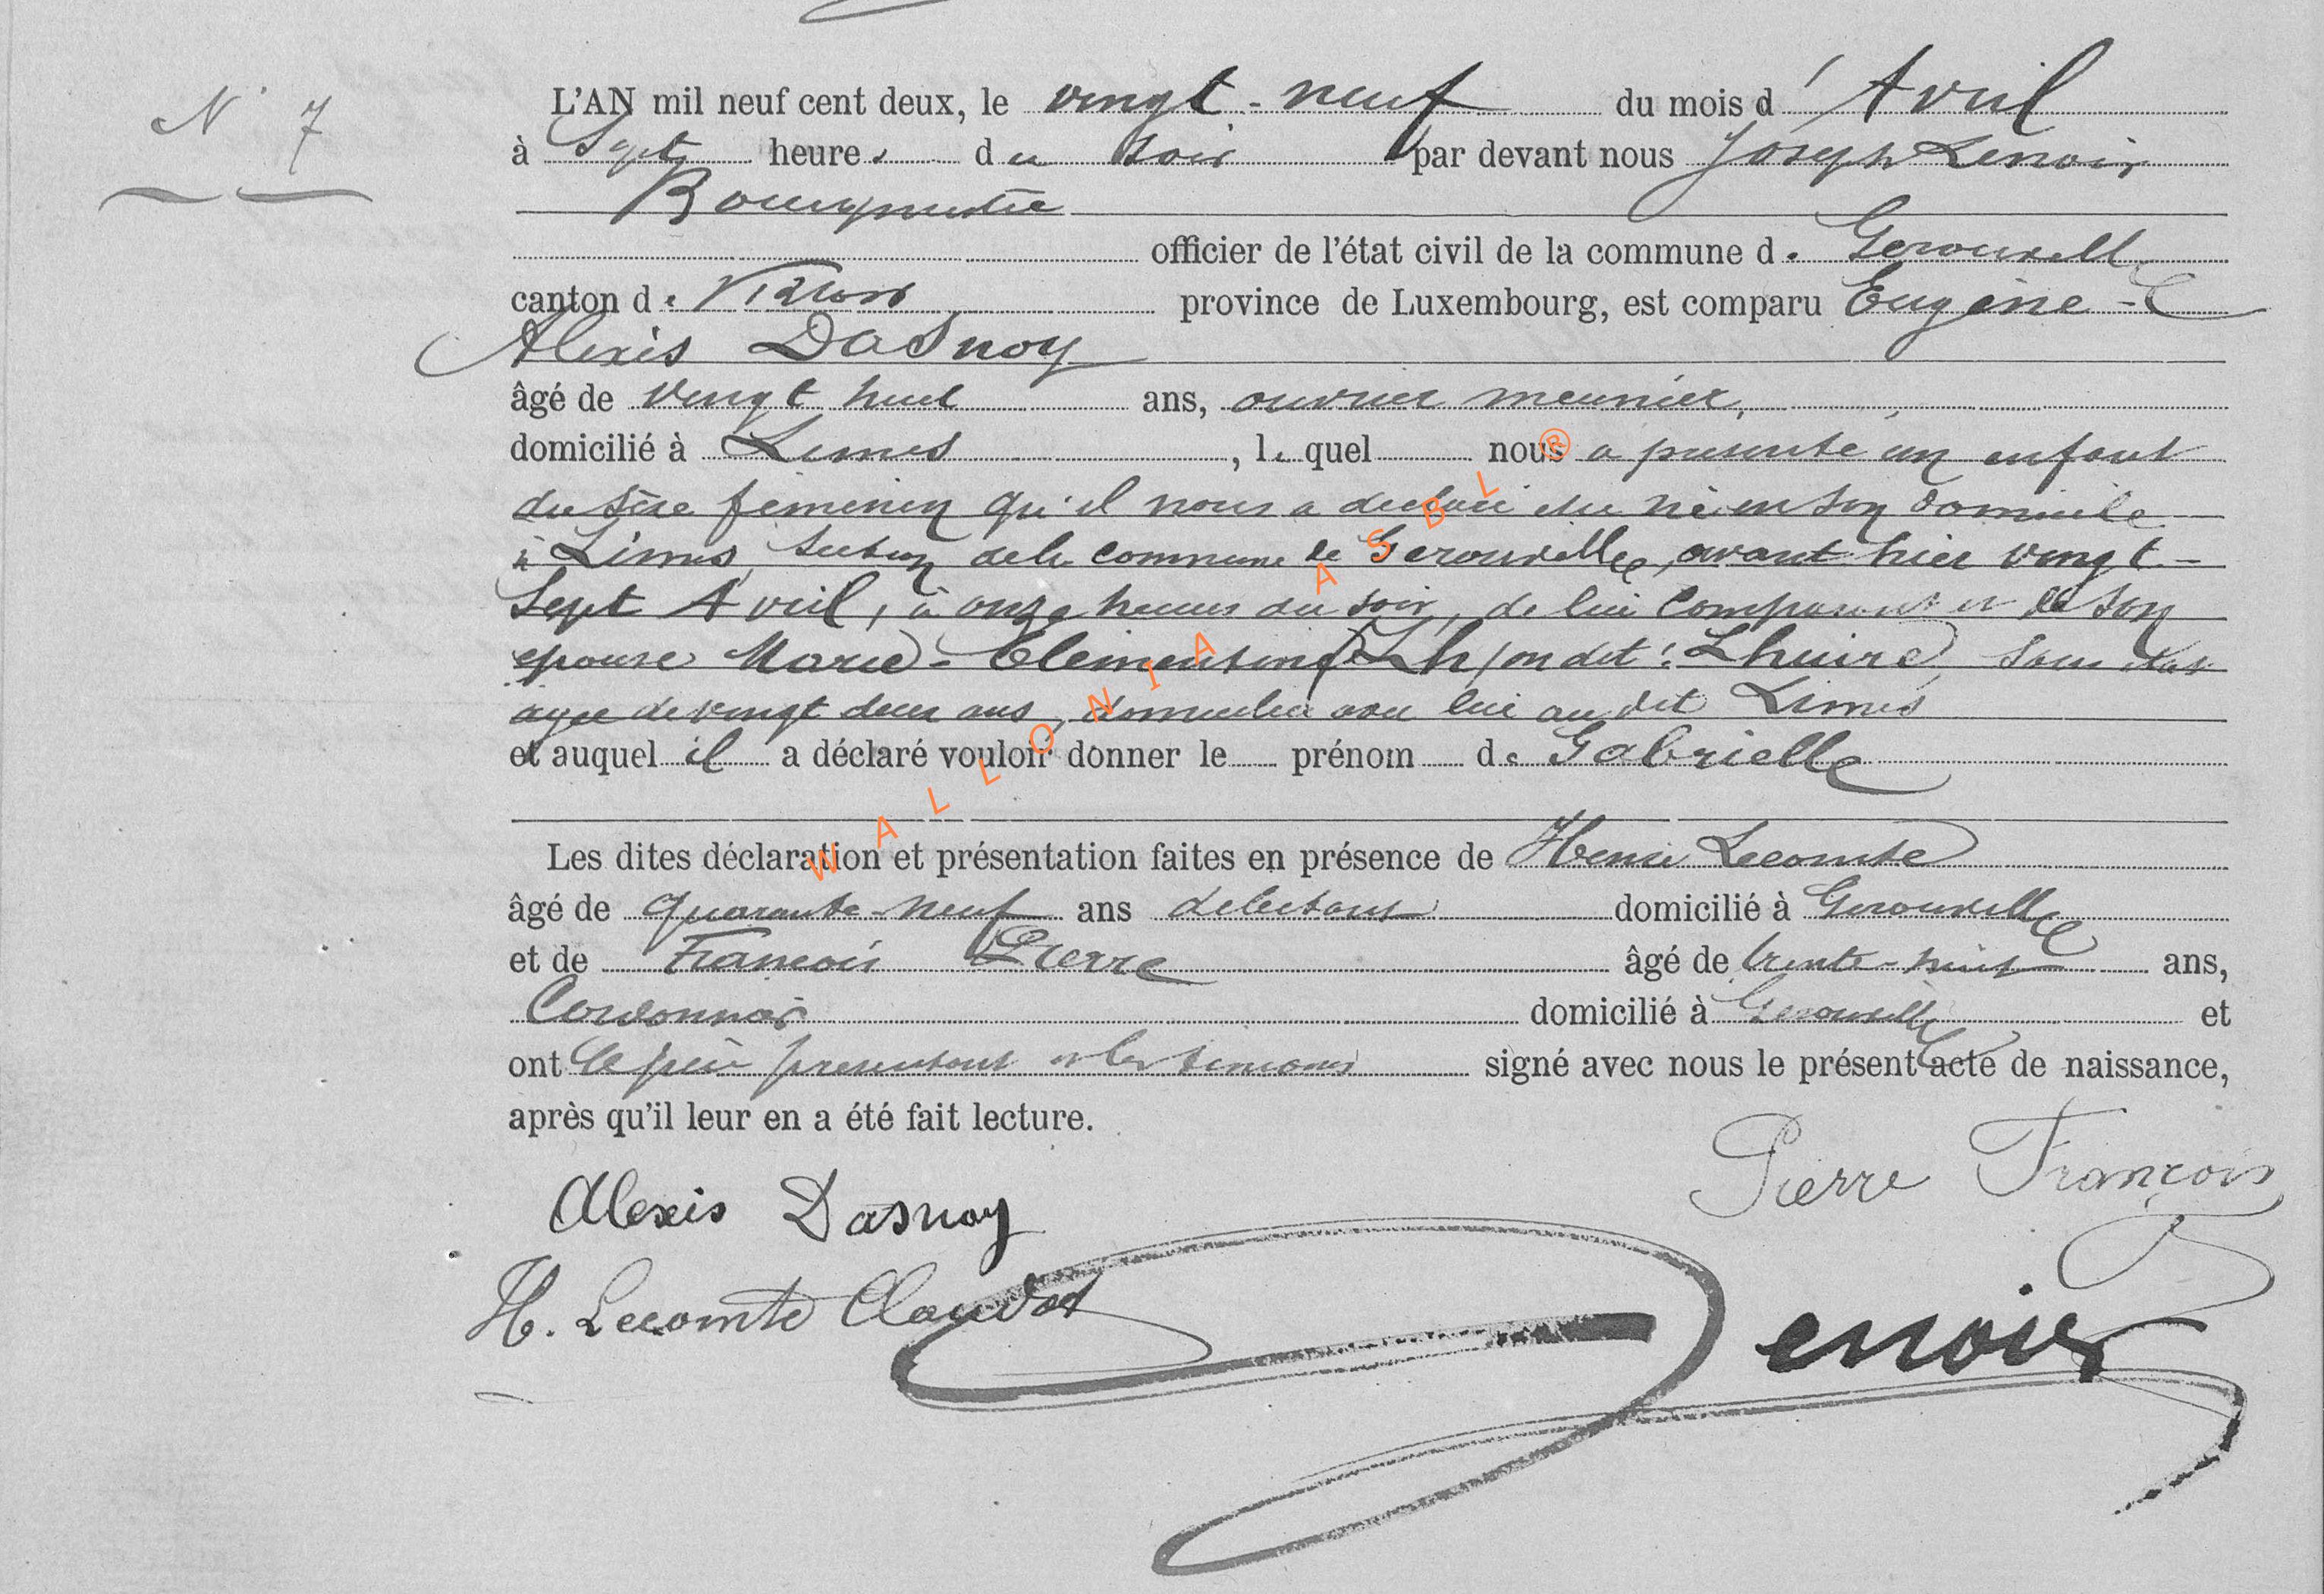 N° 7
L'AN mil neuf cent deux, le vingt-neuf du mois d'Avril
à Sept heures du soir par devant nous Joseph Lenoir
Bourgmestre
officier de l'état civil de la commune de Gerouville
canton de Virton province de Luxembourg, est comparu Eugène-
Alexis Dasnoy
âgé de vingt huit ans, ouvrier meunier,
domicilié à Limes, lequel nous a présenté un enfant
du sexe feminin qu'il nous a declaré être né en son domicile
à Limes, section de la commune de Gerouville, avant hier vingt-
Sept Avril, à onze heures du soir, de lui comparant et de son
epouse Marie-Clementine Lh/on dit: Lhuire sans état
agée de vingt deux ans, domiciliée avec lui au dit Limes
et auquel il a déclaré vouloir donner le prénom de Gabrielle
Les dites déclaration et présentation faites en présence de Henri Lecomte
âgé de quarante-neuf ans domicilié à Gerouville
et de François Pierre âgé de trente-huit ans,
Cordonnier domicilié à Gerouville et
ont le père presentant et les temoins signé avec nous le présent acte de naissance,
après qu'il leur en a été fait lecture.
Pierre François
Alexis Dasnoy
H. Lecomte Claudot
Lenoir
WALLONIA ASBL ®